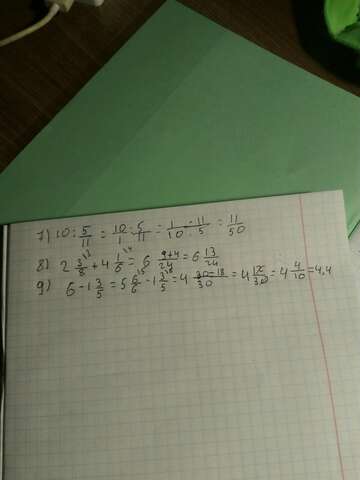 7) 10 : 5/11 = 10/1 : 5/11 = 1/10 · 11/5 = 11/50
8) 2 3/8 + 4 1/6 = 6 9+4/24 = 6 13/24
9) 6 - 1 3/5 = 5 6/6 - 1 3/5 = 4 30-18/30 = 4 12/30 = 4 4/10 = 4,4